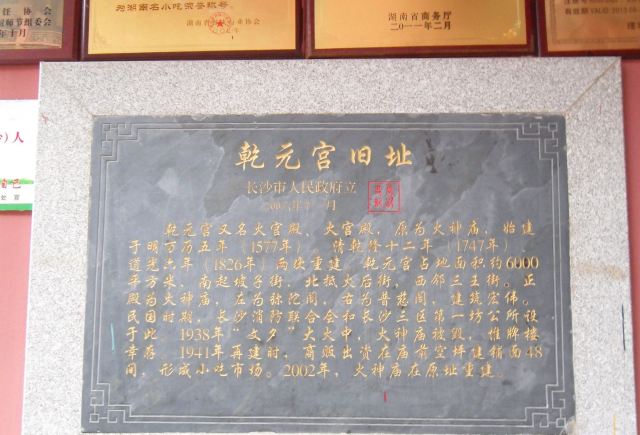 任协会
厨师节组委会
年十月
为湖南名小吃荣誉称号。
湖南省
业协会
湖南省商务厅
二〇一一年二月
人
乾元宫旧址
长沙市人民政府立
乾元宫又名火宫殿。火宫殿,原为火神庙,始建
于明万历五年(1577年)。清乾隆十二年(1747年)、
道光六年(1826年)两次重建。乾元宫占地面积约6000
平方米,南起坡子街,北抵火后街,西邻三王街。正
殿为火神庙,左为弥陀阁,右为普慈阁,建筑宏伟。
民国时期,长沙消防联合会和长沙三区第一坊公所设
于此。1938年“文夕”大火中,火神庙被毁,惟牌楼
幸存。1941年再建时,商贩出资在庙前空坪建铺面48
间,形成小吃市场。2002年,火神庙在原址重建。